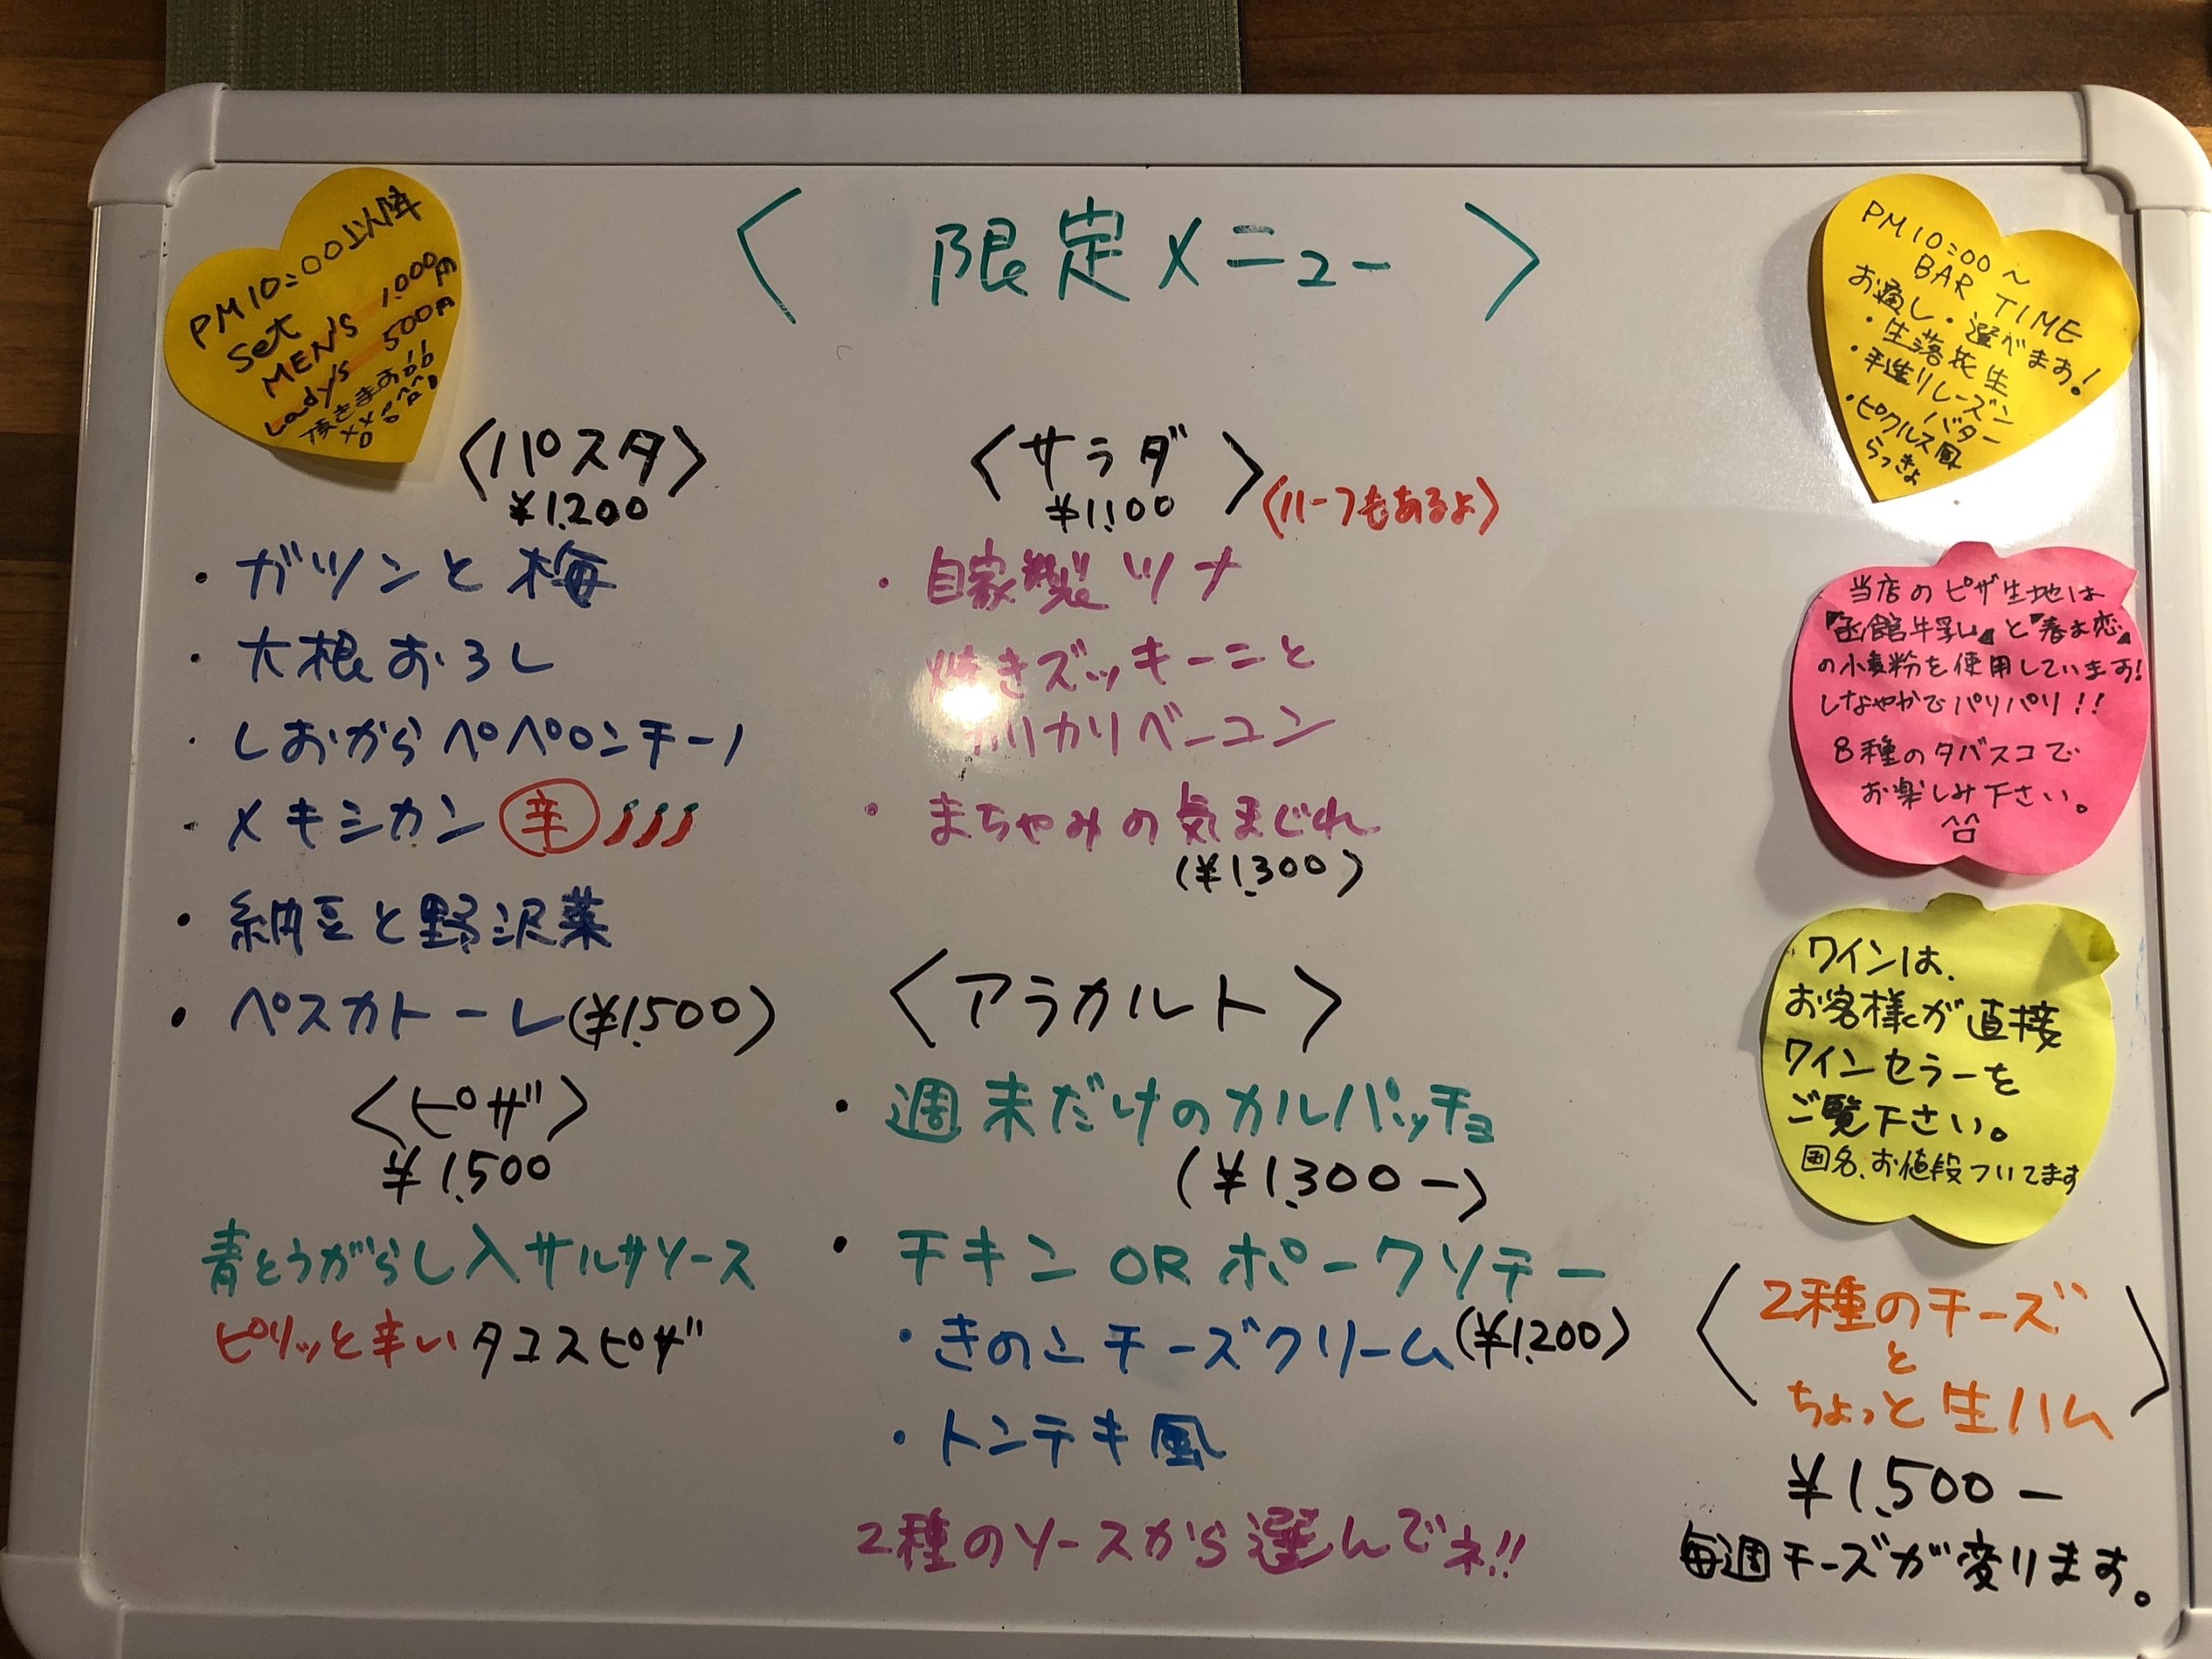 〈 限定メニュー 〉
PM10:00以降
Set
MEN's 1.000円
Lady's 500円
頂きます!!
〈パスタ〉
¥1.200
・ガツンと梅
・大根おろし
・しおからペペロンチーノ
・メキシカン 辛
・納豆と野沢菜
・ペスカトーレ(¥1.500)
〈ピザ〉
¥1.500
青とうがらし入サルサソース
ピリッと辛いタコスピザ
〈サラダ〉
¥1.100
(ハーフもあるよ)
・自家製ツナ
焼きズッキーニと
カリカリベーコン
・まちゃみの気まぐれ
(¥1.300)
〈アラカルト〉
・週末だけのカルパッチョ
(¥1.300ー)
・チキン OR ポークソテー
・きのこチーズクリーム(¥1.200)
・トンテキ風
2種のソースから選んでネ!!
PM10:00〜
BAR TIME
お癒し・選べます!
・生落花生
・手造りレーズン
バター
・ピクルス風
らっきょ
当店のピザ生地は
『函館牛乳』と『春よ恋』
の小麦粉を使用しています!
しなやかでパリパリ!!
8種のタバスコで
お楽しみ下さい。
ワインは、
お客様が直接
ワインセラーを
ご覧下さい。
国名、お値段ついてます
〈2種のチーズ
と
ちょっと生ハム〉
¥1.500ー
毎週チーズが変ります。